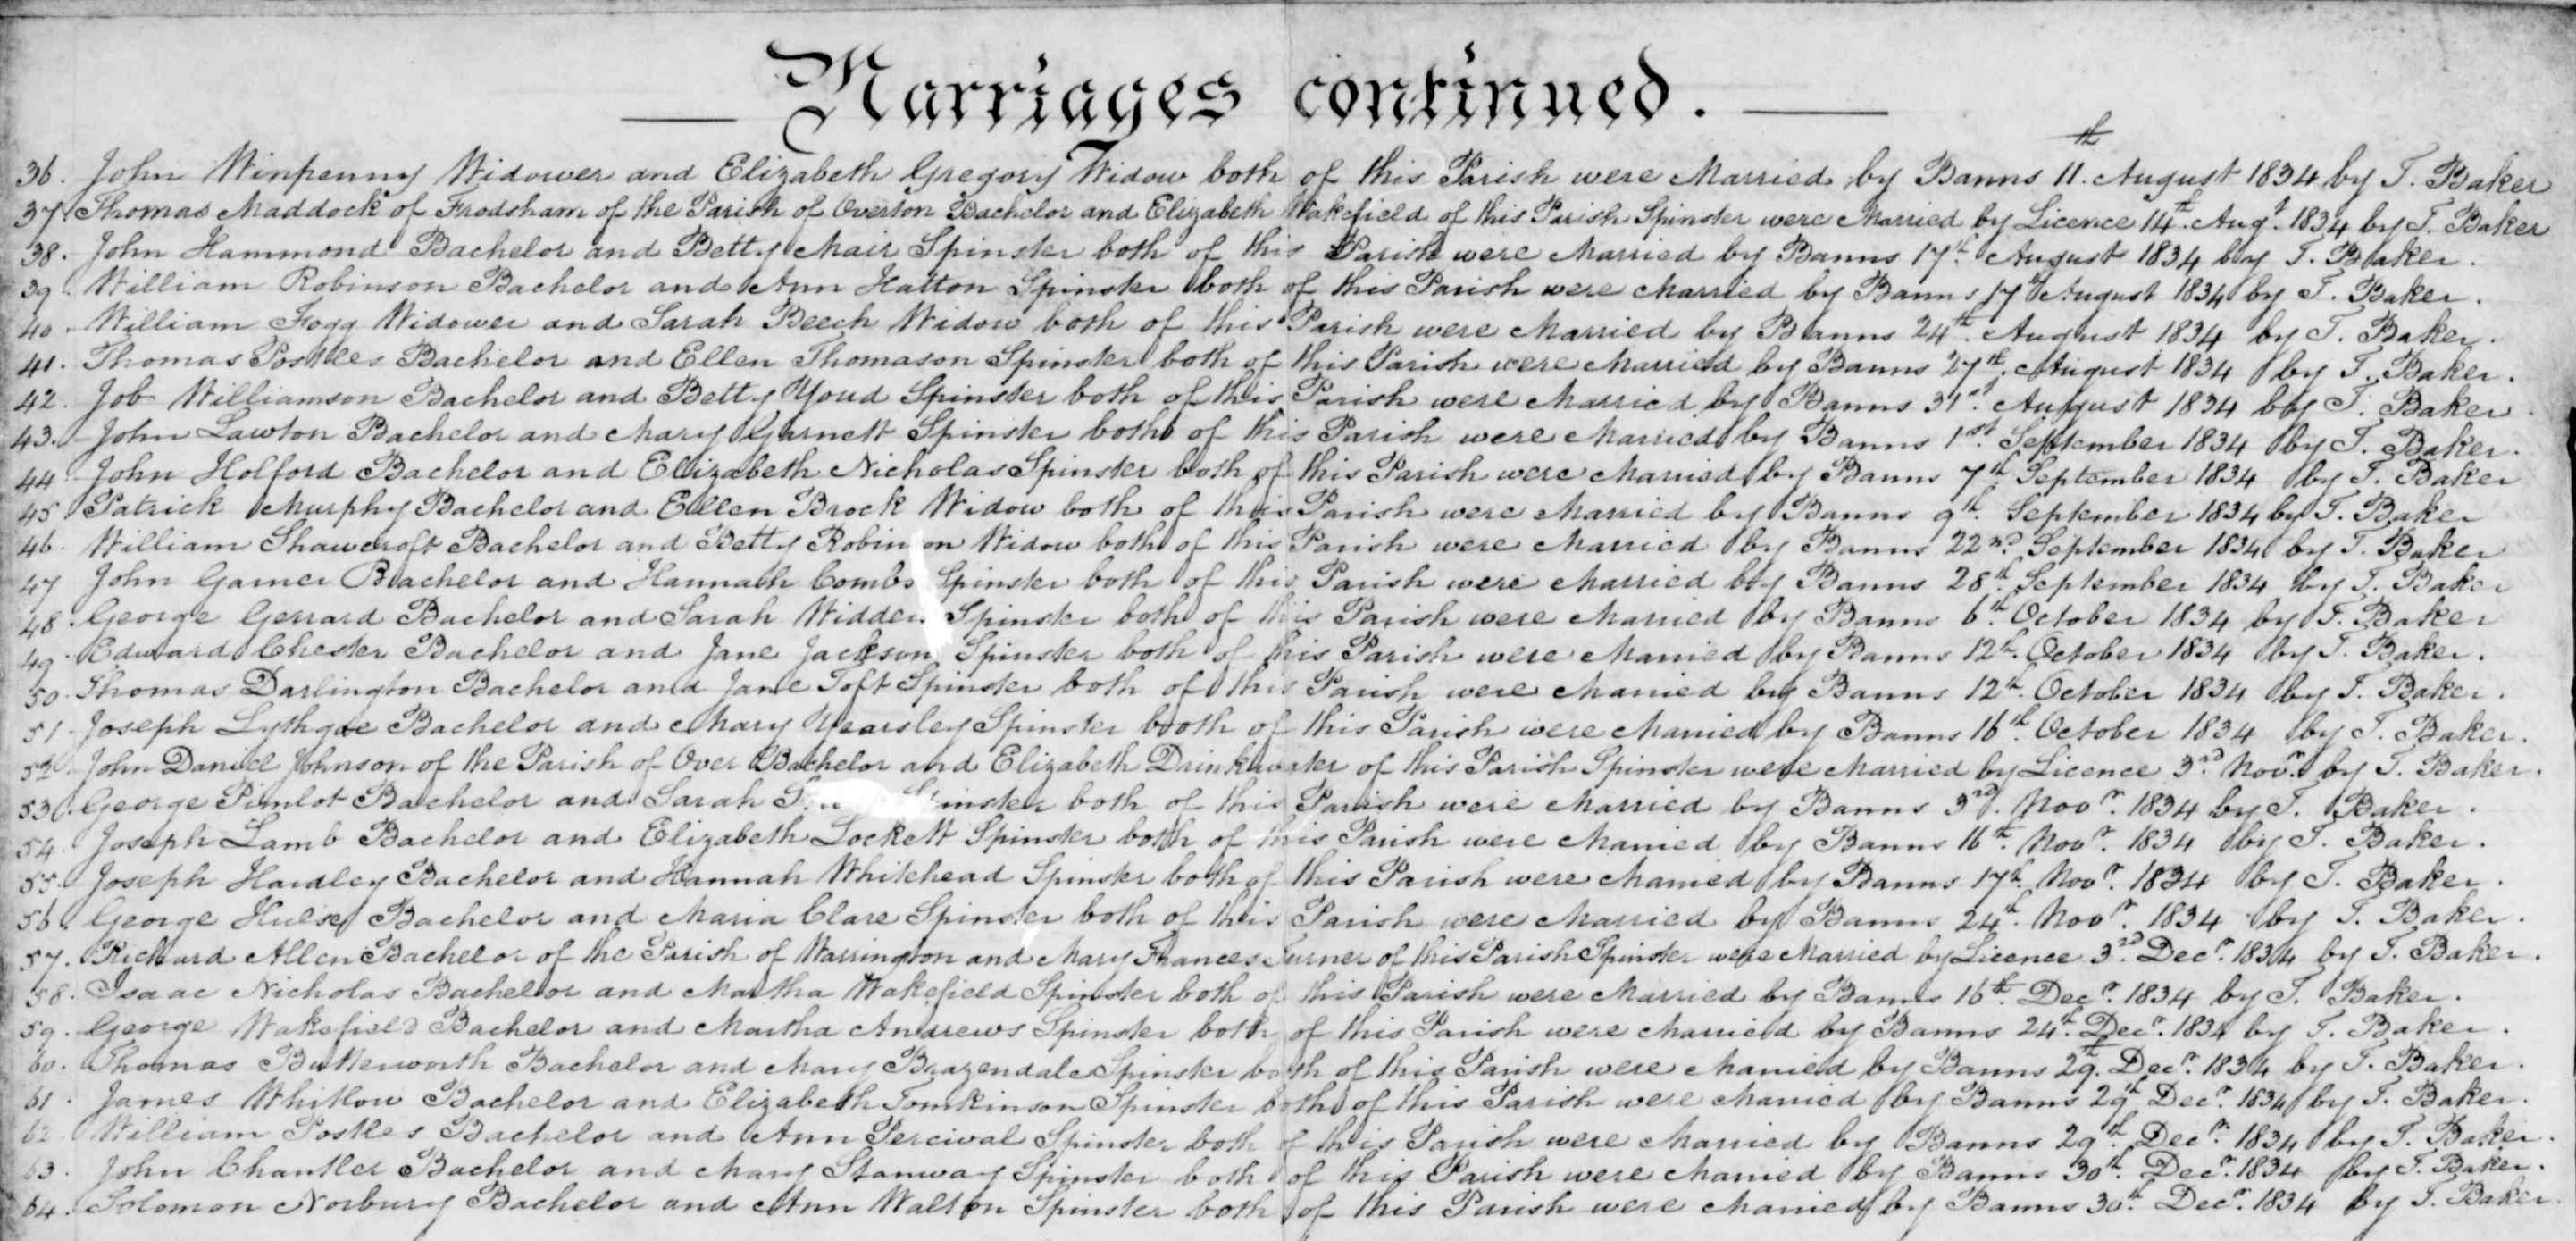 Marriages continued.
36. John Winpenny Widower and Elizabeth Gregory Widow both of this Parish were Married by Banns 11th. August 1834 by T. Baker
37. Thomas Maddock of Frodsham of the Parish of Overton Bachelor and Elizabeth Wakefield of this Parish Spinster were Married by Licence 14th. Augt. 1834 by T. Baker
38. John Hammond Bachelor and Betty Mair Spinster both of this Parish were Married by Banns 17th. August 1834 by T. Baker.
39. William Robinson Bachelor and Ann Hatton Spinster both of this Parish were Married by Banns 17th August 1834 by T. Baker.
40. William Fogg Widower and Sarah Beech Widow both of this Parish were Married by Banns 24th. August 1834 by T. Baker.
41. Thomas Postles Bachelor and Ellen Thomason Spinster both of this Parish were Married by Banns 27th. August 1834 by T. Baker.
42. Job Williamson Bachelor and Betty Youd Spinster both of this Parish were Married by Banns 31st. August 1834 by T. Baker.
43. John Lawton Bachelor and Mary Garnett Spinster both of this Parish were Married by Banns 1st. September 1834 by T. Baker.
44. John Holford Bachelor and Elizabeth Nicholas Spinster both of this Parish were Married by Banns 7th. September 1834 by T. Baker
45. Patrick Murphy Bachelor and Ellen Brock Widow both of this Parish were Married by Banns 9th. September 1834 by T. Baker
46. William Shawcroft Bachelor and Betty Robinson Widow both of this Parish were Married by Banns 22nd. September 1834 by T. Baker
47 John Garner Bachelor and Hannah Combs Spinster both of this Parish were Married by Banns 28th. September 1834 by T. Baker
48. George Gerrard Bachelor and Sarah Spinster both of this Parish were Married by Banns 6th. October 1834 by T. Baker
49. Edward Chester Bachelor and Jane Jackson Spinster both of this Parish were Married by Banns 12th. October 1834 by T. Baker.
50. Thomas Darlington Bachelor and Jane Toft Spinster both of this Parish were Married by Banns 12th. October 1834 by T. Baker.
51. Joseph Lythgoe Bachelor and Mary Yearsley Spinster both of this Parish were Married by Banns 16th. October 1834 by T. Baker.
52. John Daniel Johnson of the Parish of Over Bachelor and Elizabeth Drinkwater of this Parish Spinster were Married by Licence 3rd. Novr. by T. Baker.
53. George Pimlot Bachelor and Sarah Spinster both of this Parish were Married by Banns 3rd. Novr. 1834 by T. Baker.
54. Joseph Lamb Bachelor and Elizabeth Lockett Spinster both of this Parish were Married by Banns 16th. Novr. 1834 by T. Baker.
55. Joseph Hardley Bachelor and Hannah Whitehead Spinster both of this Parish were Married by Banns 17th. Novr. 1834 by T. Baker.
56. George Hulse Bachelor and Maria Clare Spinster both of this Parish were Married by Banns 24th. Novr. 1834 by T. Baker.
57. Richard Allen Bachelor of the Parish of Warrington and Mary Frances Turner of this Parish Spinster were Married by Licence 3rd. Decr. 1834 by T. Baker.
58. Isaac Nicholas Bachelor and Martha Wakefield Spinster both of this Parish were Married by Banns 16th. Decr. 1834 by T. Baker.
59. George Wakefield Bachelor and Martha Andrews Spinster both of this Parish were Married by Banns 24th. Decr. 1834 by T. Baker.
60. Thomas Butterworth Bachelor and Mary Brazendale Spinster both of this Parish were Married by Banns 29th. Decr. 1834 by T. Baker.
61. James Whitlow Bachelor and Elizabeth Tomkinson Spinster both of this Parish were Married by Banns 29th. Decr. 1834 by T. Baker.
62. William Postles Bachelor and Ann Percival Spinster both of this Parish were Married by Banns 29th. Decr. 1834 by T. Baker.
63. John Chantler Bachelor and Mary Stanway Spinster both of this Parish were Married by Banns 30th. Decr. 1834 by T. Baker.
64. Solomon Norbury Bachelor and Ann Walton Spinster both of this Parish were Married by Banns 30th. Decr. 1834 by T. Baker.